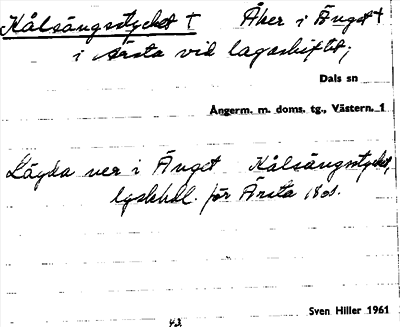 Kålsängsstycket † Åker i Änget †
i Ärsta vid lagaskiftet;
Dals sn
Ångerm. m. doms. tg., Västern. 1
Lägda ner i Änget Kålsängsstycket,
lgskhdl. för Ärsta 18
Sven Hiller 1961
43